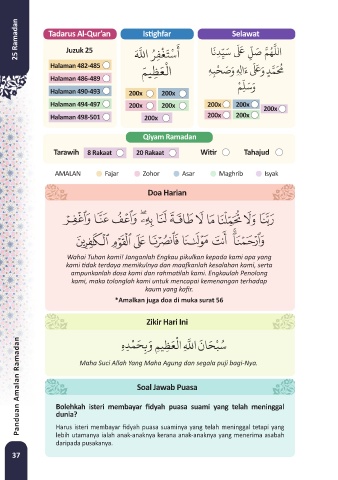 25 Ramadan
Tadarus Al-Qur'an
Istighfar
Selawat
Juzuk 25
Halaman 482-485
Halaman 486-489
Halaman 490-493
Halaman 494-497
Halaman 498-501
أَسْتَغْفِرُ اللَّهَ
الْعَظِيمَ
200x 200x
200x 200x
200x
اللَّهُمَّ صَلِّ عَلَى سَيِّدِنَا
مُحَمَّدٍ وَعَلَى ءَالِهِ وَصَحْبِهِ
وَسَلِّمْ
200x 200x
200x
200x 200x
Qiyam Ramadan
Tarawih 8 Rakaat 20 Rakaat Witir Tahajud
AMALAN Fajar Zohor Asar Maghrib Isyak
Doa Harian
رَبَّنَا وَلَا تُحَمِّلْنَا مَا لَا طَاقَةَ لَنَا بِهِۦ ۖ وَٱعْفُ عَنَّا وَٱغْفِرْ
لَنَا وَٱرْحَمْنَآ ۚ أَنتَ مَوْلَىٰنَا فَٱنصُرْنَا عَلَى ٱلْقَوْمِ ٱلْكَٰفِرِينَ
Wahai Tuhan kami! Janganlah Engkau pikulkan kepada kami apa yang
kami tidak terdaya memikulnya dan maafkanlah kesalahan kami, serta
ampunkanlah dosa kami dan rahmatilah kami. Engkaulah Penolong
kami, maka tolonglah kami untuk mencapai kemenangan terhadap
kaum yang kafir.
*Amalkan juga doa di muka surat 56
Zikir Hari Ini
سُبْحَانَ اللَّهِ الْعَظِيمِ وَبِحَمْدِهِ
Maha Suci Allah Yang Maha Agung dan segala puji bagi-Nya.
Soal Jawab Puasa
Bolehkah isteri membayar fidyah puasa suami yang telah meninggal
dunia?
Harus isteri membayar fidyah puasa suaminya yang telah meninggal tetapi yang
lebih utamanya ialah anak-anaknya kerana anak-anaknya yang menerima asabah
daripada pusakanya.
Panduan Amalan Ramadan
37